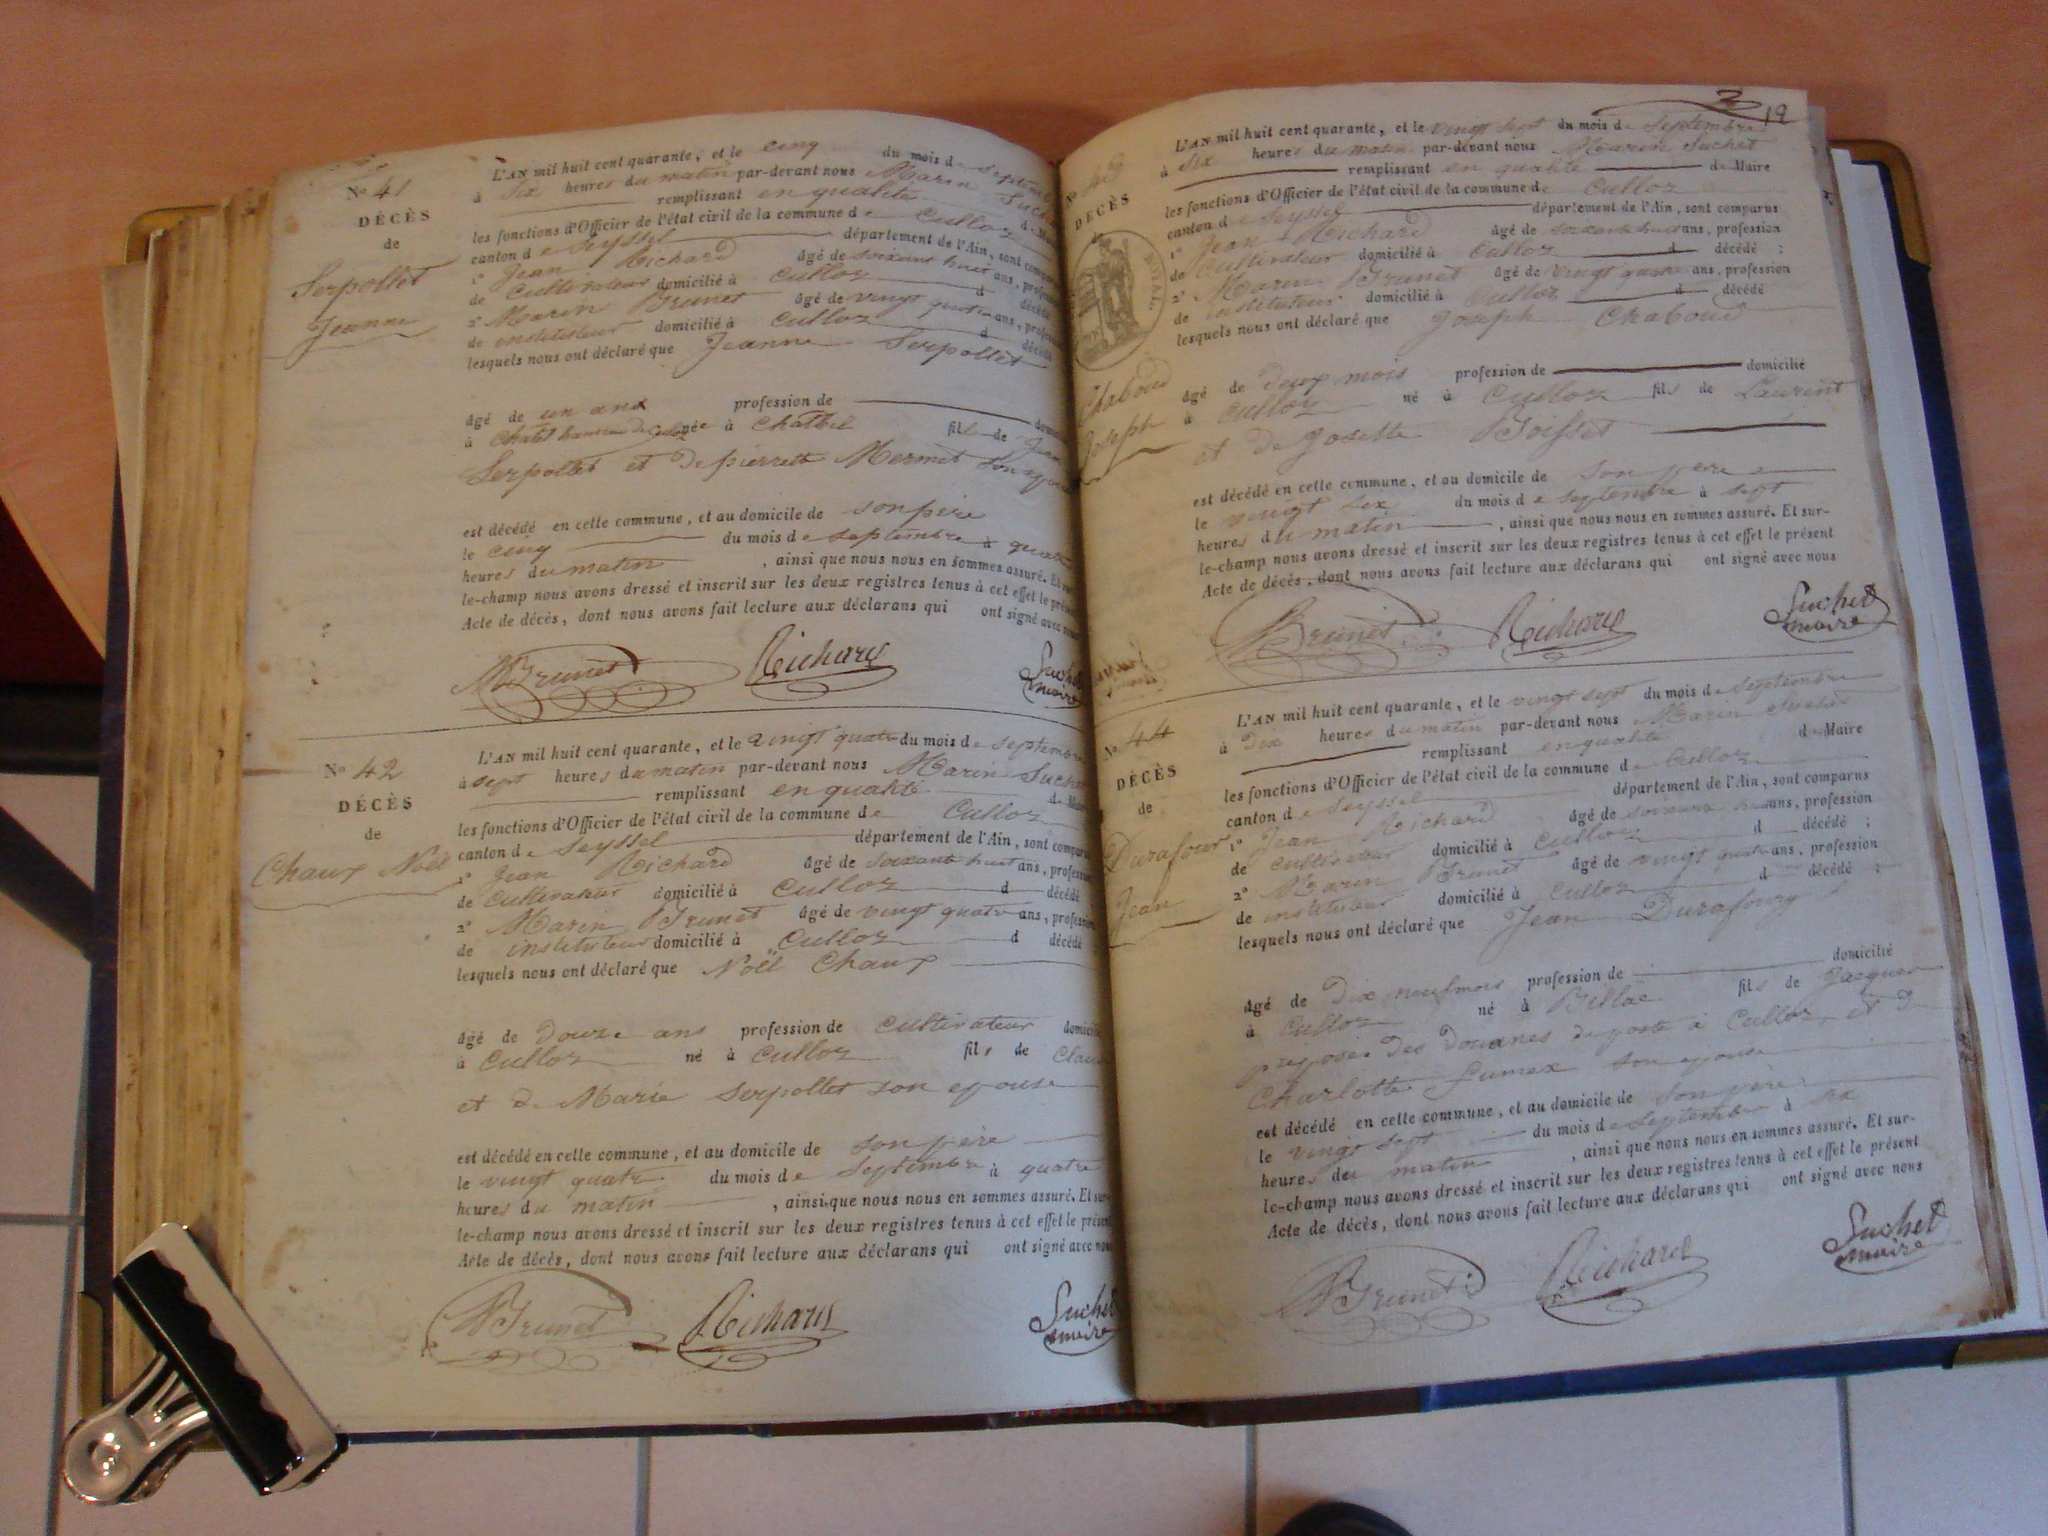 Nº 41
DÉCÈS
de
Serpollet
Jeanne
L'AN mil huit cent quarante, et le cinq du mois de septembre
à six heures du matin par-devant nous Marin Suchet
remplissant en qualité de Maire
les fonctions d'Officier de l'état civil de la commune de Culloz
canton de Seyssel département de l'Ain, sont comparus
1º Jean Richard âgé de soixante huit ans, profession
de cultivateur domicilié à Culloz d décédé
2º Marin Brunet âgé de vingt quatre ans, profession
de instituteur domicilié à Culloz d décédé
lesquels nous ont déclaré que Jeanne Serpollet
âgé de un ans profession de domicilié
à née à Chatbel fille de Jean
Serpollet et de pierrette Mermet son épouse
est décédé en cette commune, et au domicile de son père
le cinq du mois de septembre à quatre
heures du matin, ainsi que nous nous en sommes assuré. Et sur-
le-champ nous avons dressé et inscrit sur les deux registres tenus à cet effet le présent
Acte de décès, dont nous avons fait lecture aux déclarans qui ont signé avec nous
MBrunet Richard Suchet
maire
Nº 42
DÉCÈS
de
Chaux Noël
L'AN mil huit cent quarante, et le vingt quatre du mois de septembre
à sept heures du matin par-devant nous Marin Suchet
remplissant en qualité de Maire
les fonctions d'Officier de l'état civil de la commune de Culloz
canton de Seyssel département de l'Ain, sont comparus
1º Jean Richard âgé de soixante huit ans, profession
de cultivateur domicilié à Culloz d décédé
2º Marin Brunet âgé de vingt quatre ans, profession
de instituteur domicilié à Culloz d décédé
lesquels nous ont déclaré que Noël Chaux
âgé de douze ans profession de cultivateur domicilié
à Culloz né à Culloz fils de Claude
et de Marie Serpollet son epouse
est décédé en cette commune, et au domicile de son père
le vingt quatre du mois de septembre à quatre
heures du matin, ainsi que nous nous en sommes assuré. Et sur-
le-champ nous avons dressé et inscrit sur les deux registres tenus à cet effet le présent
Acte de décès, dont nous avons fait lecture aux déclarans qui ont signé avec nous
MBrunet Richard Suchet
maire
19
Nº 43
DÉCÈS
de
ROYAL
Chaboud
Joseph
L'AN mil huit cent quarante, et le vingt sept du mois de septembre
à six heures du matin par-devant nous Marin Suchet
remplissant en qualité de Maire
les fonctions d'Officier de l'état civil de la commune de Culloz
canton de Seyssel département de l'Ain, sont comparus
1º Jean Richard âgé de soixante huit ans, profession
de cultivateur domicilié à Culloz d décédé ;
2º Marin Brunet âgé de vingt quatre ans, profession
de instituteur domicilié à Culloz d décédé
lesquels nous ont déclaré que Joseph Chaboud
âgé de deux mois profession de domicilié
à Culloz né à Culloz fils de Laurent
et de Josette Boisset
est décédé en cette commune, et au domicile de son père
le vingt six du mois de septembre à sept
heures du matin, ainsi que nous nous en sommes assuré. Et sur-
le-champ nous avons dressé et inscrit sur les deux registres tenus à cet effet le présent
Acte de décès, dont nous avons fait lecture aux déclarans qui ont signé avec nous
MBrunet Richard Suchet
maire
Nº 44
DÉCÈS
de
Durafour
Jean
L'AN mil huit cent quarante, et le vingt sept du mois de septembre
à dix heures du matin par-devant nous Marin Suchet
remplissant en qualité de Maire
les fonctions d'Officier de l'état civil de la commune de Culloz
canton de Seyssel département de l'Ain, sont comparus
1º Jean Richard âgé de soixante huit ans, profession
de cultivateur domicilié à Culloz d décédé ;
2º Marin Brunet âgé de vingt quatre ans, profession
de instituteur domicilié à Culloz d décédé ;
lesquels nous ont déclaré que Jean Durafour
âgé de dix neuf mois profession de domicilié
à Culloz né à fils de Jacques
preposé des douanes de poste à Culloz et de
Charlotte Fumex son epouse
est décédé en cette commune, et au domicile de son père
le vingt sept du mois de septembre à six
heures du matin, ainsi que nous nous en sommes assuré. Et sur-
le-champ nous avons dressé et inscrit sur les deux registres tenus à cet effet le présent
Acte de décès, dont nous avons fait lecture aux déclarans qui ont signé avec nous
MBrunet Richard Suchet
maire